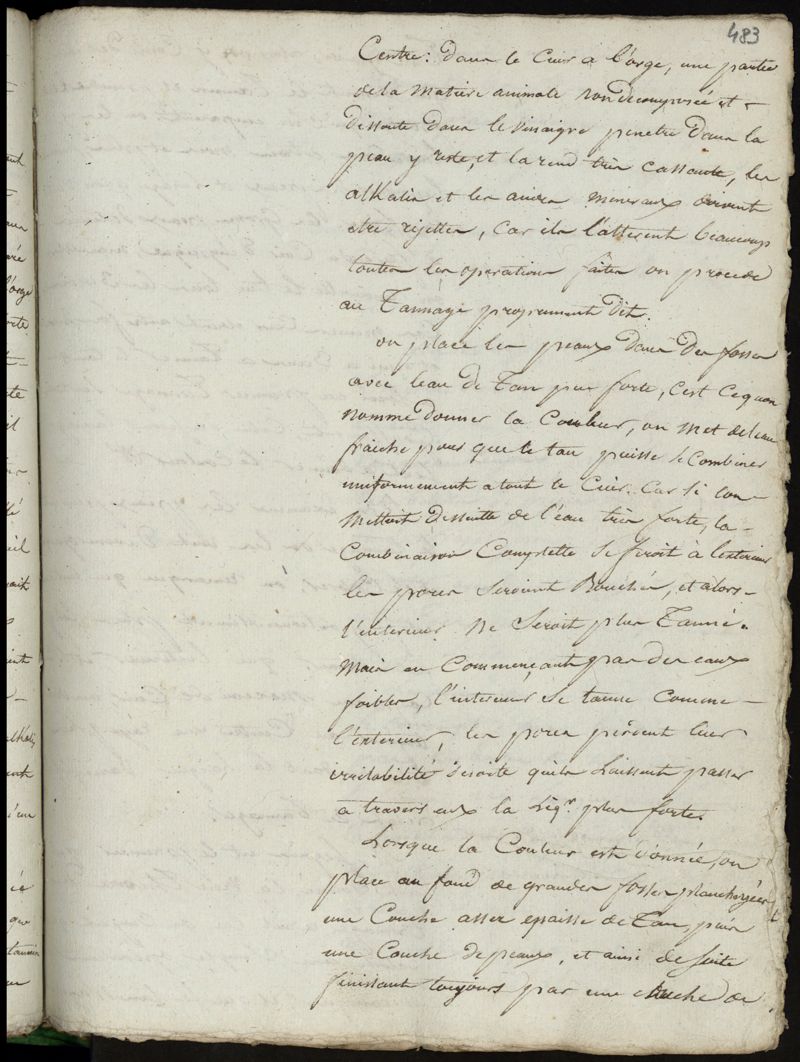 483
Centre: dans le Cuir a l'orge, une partie
de la Matiere animale non decomposée et
dissoute dans le vinaigre penetre dans la
peau y reste, et la rend très cassante, les
alkalis et les acides mineraux doivent
etre rejettes, car ils l'alterent beaucoup
toutes les operations faites on procede
au Tannage proprement dit.
on place les peaux dans des fosses
avec l'eau de Tan peu forte, c'est ce qu'on
nomme donner la Couleur, on met de l'eau
fraiche pour que le tan puisse se combiner
uniformement a tout le Cuir. Car si l'on
mettoit de suitte de l'eau très forte, la
Combinaison Complette se feroit à l'exterieur
les pores seroient Bouchés, et alors
l'interieur ne seroit plus Tanné.
Mais en Commençant par des eaux
foibles, l'interieur se tanne comme
l'exterieur, les pores perdent leur
irritabilité desorte qu'ils laissent passer
a travers eux la liqr. plus forte.
Lorsque la Couleur est donnée, on
place au fond de grandes fosses plancheyées
une Couche assez epaisse de Tan, puis
une Couche de peaux, et ainsi de suite
finissant toujours par une couche de